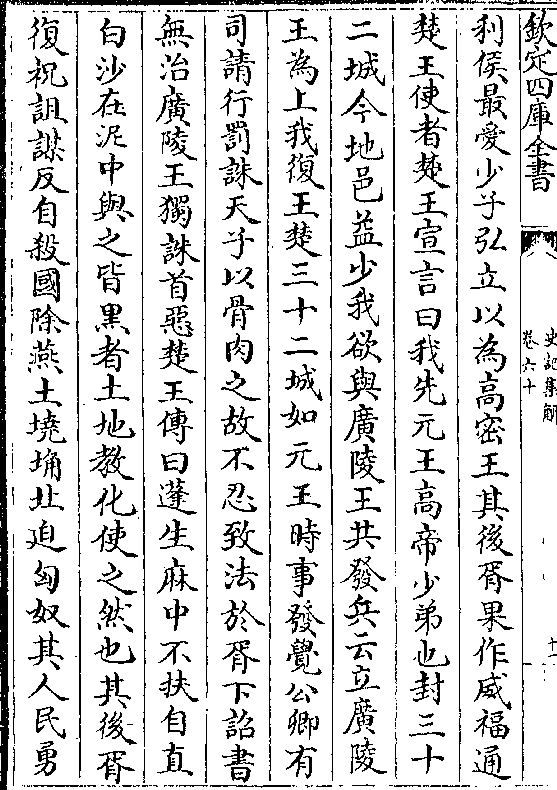 欽定四庫全書
史記集解
卷六十
十一
利侯最愛少子弘立以為高密王其後胥果作威福通
楚王使者楚王宣言曰我先元王高帝少弟也封三十
二城今地邑益少我欲與廣陵王共發兵云立廣陵
王為上我復王楚三十二城如元王時事發覺公卿有
司請行罰誅天子以骨肉之故不忍致法於胥下詔書
無治廣陵王獨誅首惡楚王傳曰蓬生麻中不扶自直
白沙在泥中與之皆黑者土地教化使之然也其後胥
復祝詛謀反自殺國除燕土墝埆北迫匈奴其人民勇